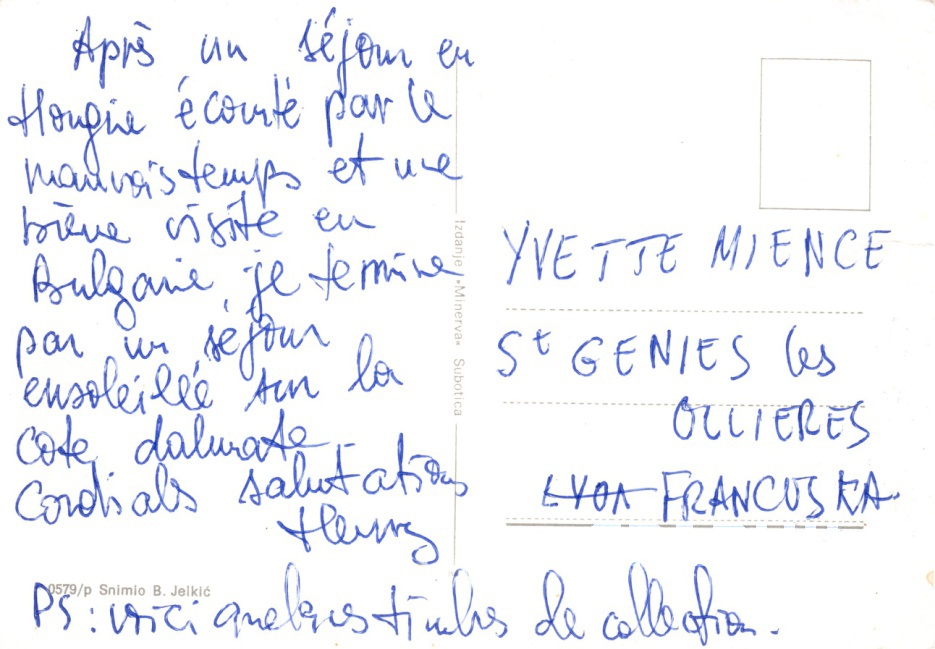 Après un séjour en
Hongrie écourté par le
mauvais temps et une
brève visite en
Bulgarie, je termine
par un séjour
ensoleillé sur la
cote dalmate.
Cordiales salutations
Henry
PS : voici quelques timbres de collection.
0579/p Snimio B. Jelkić
Izdanje »Minerva« Subotica
YVETTE MIENCE
St GENIES les
OLLIERES
LYON FRANCUSKA.